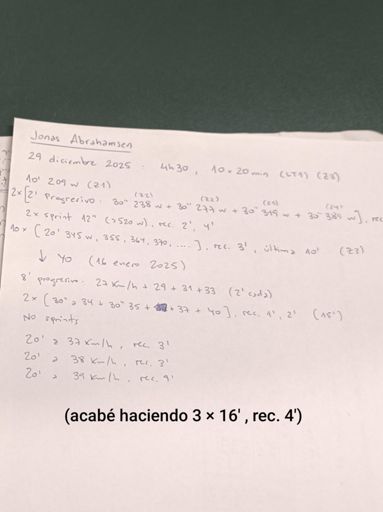 Jonas Abrahamsen
29 diciembre 2025. 4h30, 10 x 20 min (LT1) (Z3)
10' 209 w (Z1)
2x [2' progresivo: 30" 238 w + 30" 277 w + 30" 319 w + 30" 389 w], rec.
(Z2) (Z2) (Z3) (Z4)
2x sprint 12" (>520 w), rec. 2', 4'
10x [20' 345 w, 355, 364, 370, ....], rec. 3', última 10' (Z3)
↓ YO (16 enero 2025)
8' progresivo: 27 km/h + 29 + 31 + 33 (2' cada)
2x [30" a 34 + 30" 35 + 37 + 40], rec. 1', 2' (15')
No sprints
20' a 37 km/h, rec. 3'
20' a 38 km/h, rec. 3'
20' a 39 km/h, rec. 4'
(acabé haciendo 3 × 16', rec. 4')